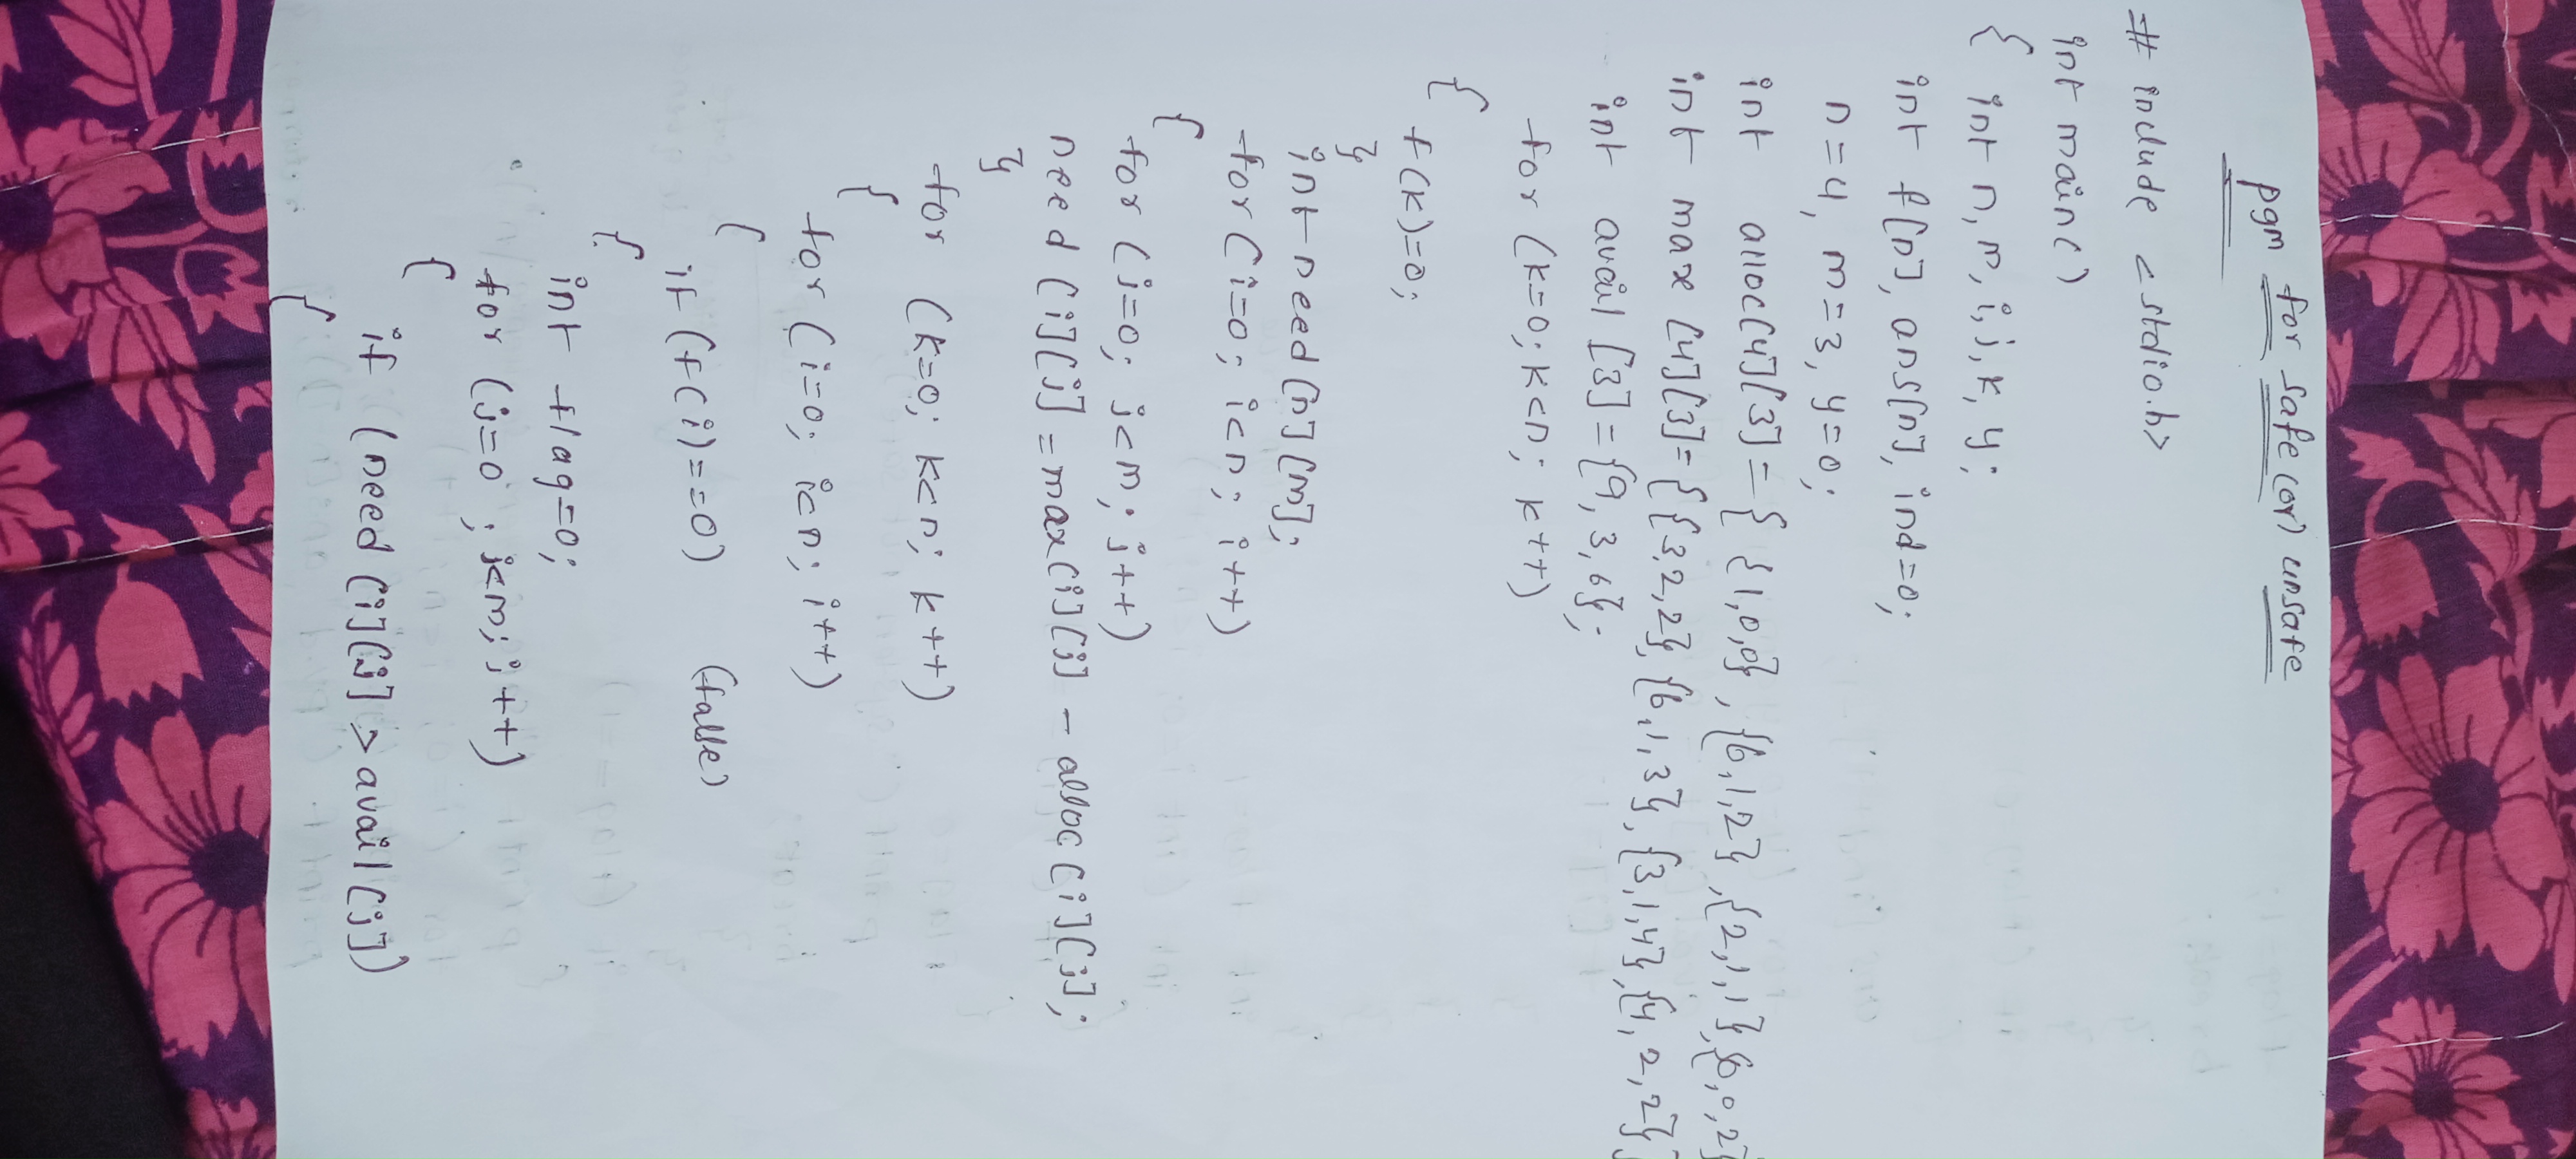 pgm for safe (or) unsafe
# include <stdio.h>
int main()
{ int n, m, i, j, k, y;
int f[n], ans[n], ind=0;
n=4, m=3, y=0;
int alloc[4][3]={ {1,0,0}, {6,1,2}, {2,1,1}, {0,0,2}
int max [4][3]={ {3,2,2}, {6,1,3}, {3,1,4}, {4,2,2}
int avail [3]={9,3,6};
for (k=0; k<n; k++)
{
f(k)=0;
}
int need[n][m];
for (i=0; i<n; i++)
{
for (j=0; j<m; j++)
need [i][j]=max[i][j] - alloc[i][j];
}
for (k=0; k<n; k++)
{
for (i=0; i<n; i++)
{
if (f(i)==0) (false)
{
int flag=0;
for (j=0; j<m; j++)
{
if (need [i][j] > avail[j])
{